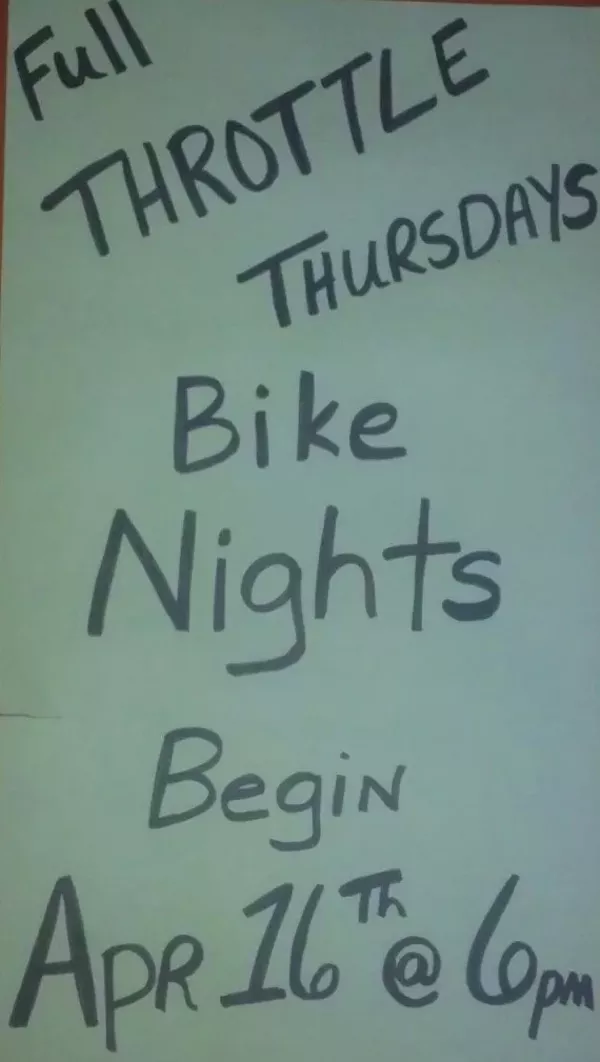 Full
THROTTLE
THURSDAYS
Bike
Nights
Begin
Apr 16Th @ 6pm